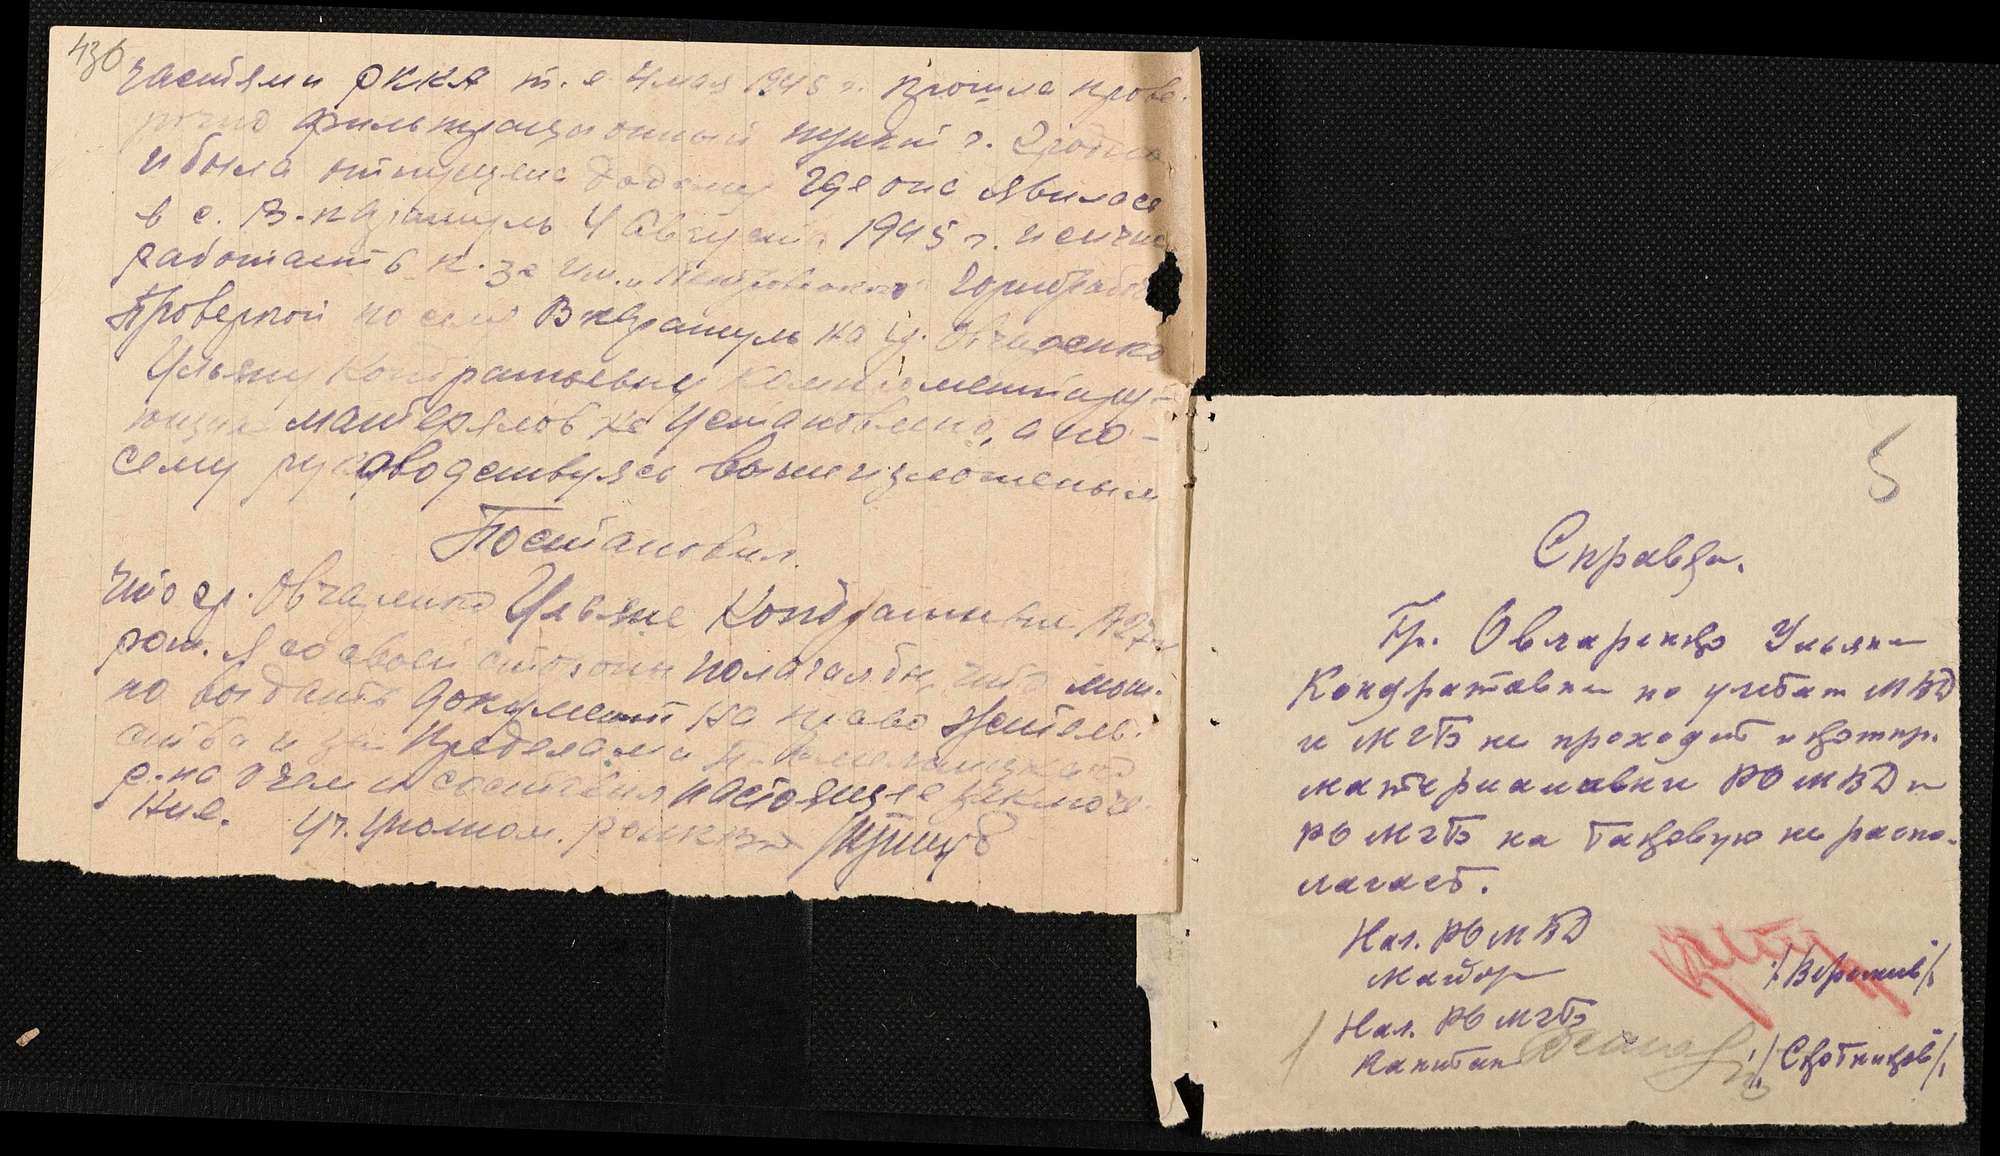 436
частями РККА т. е 4 мая 1945 г. прошла прове-
рочно фильтрационный пункт г. Гродно
и была отпущена додому где она явилась
в с. В. 4 Августа 1945 г. и сичас
работает в к-зе им. „Петровского"
Проверкой по селу на гр. Овчаренко
Ульяну Кондратьевну компроментиру-
ющих матерялов не установлено, а по-
сему руководствуясь вышеизложеным
Постановил.
что гр. Овчаренко Ульяне Кондратьевне 1927
рож. Я со своей стороны полагал бы, что мож-
но выдать документ на право жетель-
ства и за пределами
р-на о чем и составил настоящее заключе-
ние. Уч. Уполном.
5
Справка.
Гр. Овчаренко Ульяна
Кондратовна по учетам МВД
и МГБ не проходит и компр.
материалами РО МВД и
РО МГБ на таковую не распо-
лагает.
Нач. РО МВД
Майор
Нач. РО МГБ
Капитан /Скотников/